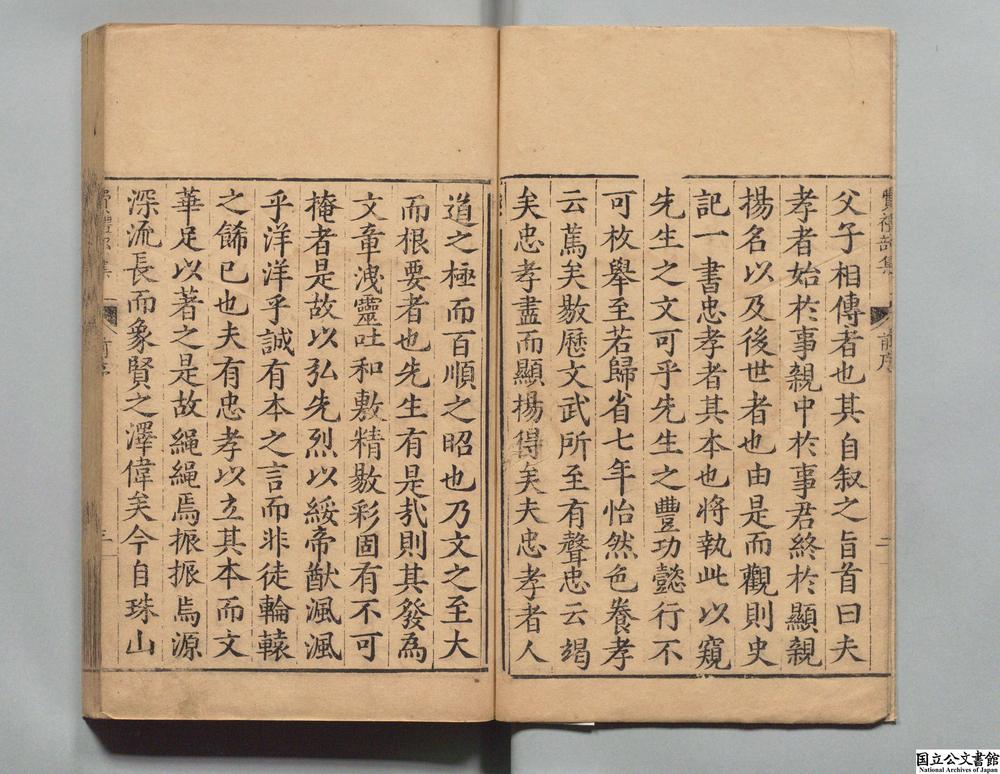 費禮部集
前序
二
父子相傳者也其自叙之旨首曰夫
孝者始於事親中於事君終於顯親
揚名以及後世者也由是而觀則史
記一書忠孝者其本也將執此以窺
先生之文可乎先生之豐功懿行不
可枚舉至若歸省七年怡然色養孝
云蔿矣敭歷文武所至有聲忠云竭
矣忠孝盡而顯揚得矣夫忠孝者人
道之極而百順之昭也乃文之至大
而根要者也先生有是貮則其發為
文章洩靈吐和敷精敭彩固有不可
掩者是故以弘先烈以綏帝猷渢渢
乎洋洋乎誠有本之言而非徒輪轅
之餙已也夫有忠孝以立其本而文
華足以著之是故繩繩焉振振焉源
深流長而象賢之澤偉矣今自珠山
三
国立公文書館
National Archives of Japan